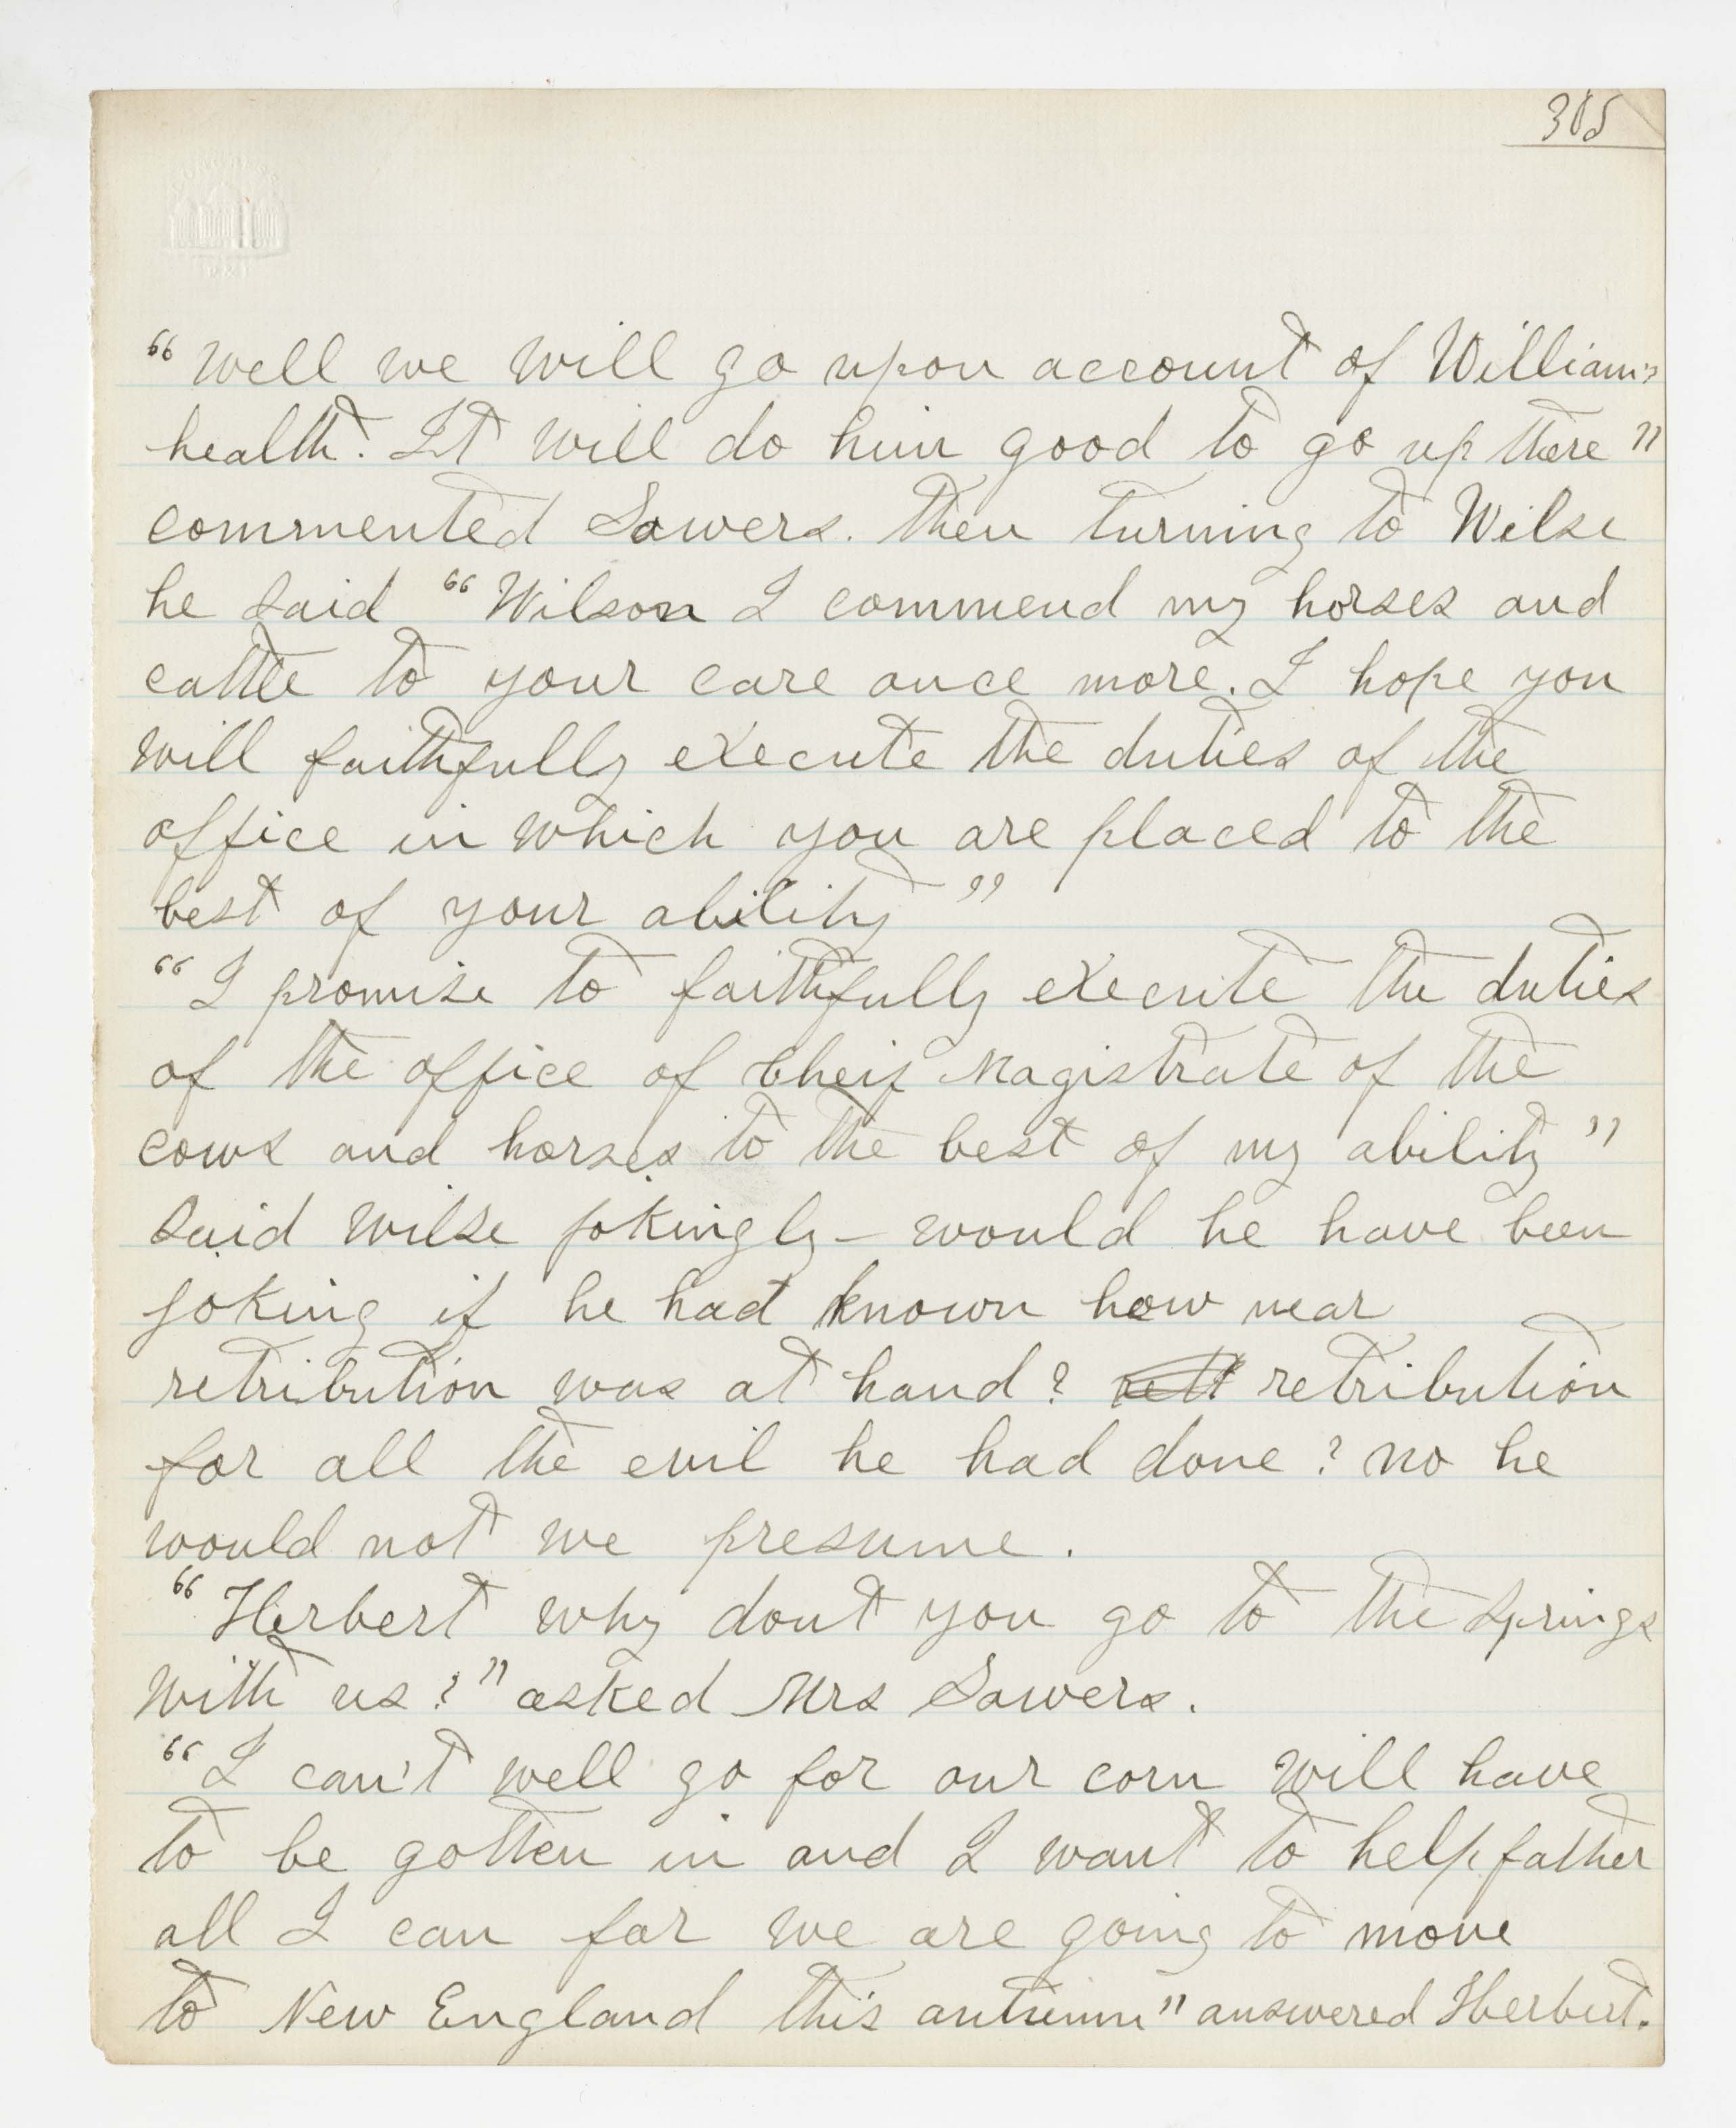 305
“Well we will go upon account of William's
health. It will do him good to go up there”
commented Sowers. Then turning to Wilse
he said “Wilson I commend my horses and
cattle to your care once more. I hope you
will faithfully execute the duties of the
office in which you are placed to the
best of your ability”
“I promise to faithfully execute the duties
of the office of Cheif Magistrate of the
cows and horses to the best of my ability”
said Wilse jokingly – would he have been
joking if he had known how near
retribution was at hand? retribution
for all the evil he had done? no he
would not we presume.
“Herbert why dont you go to the Springs
with us?” asked Mrs Sowers.
“I can't well go for our corn will have
to be gotten in and I want to help father
all I can for we are going to move
to New England this autumn” answered Herbert.